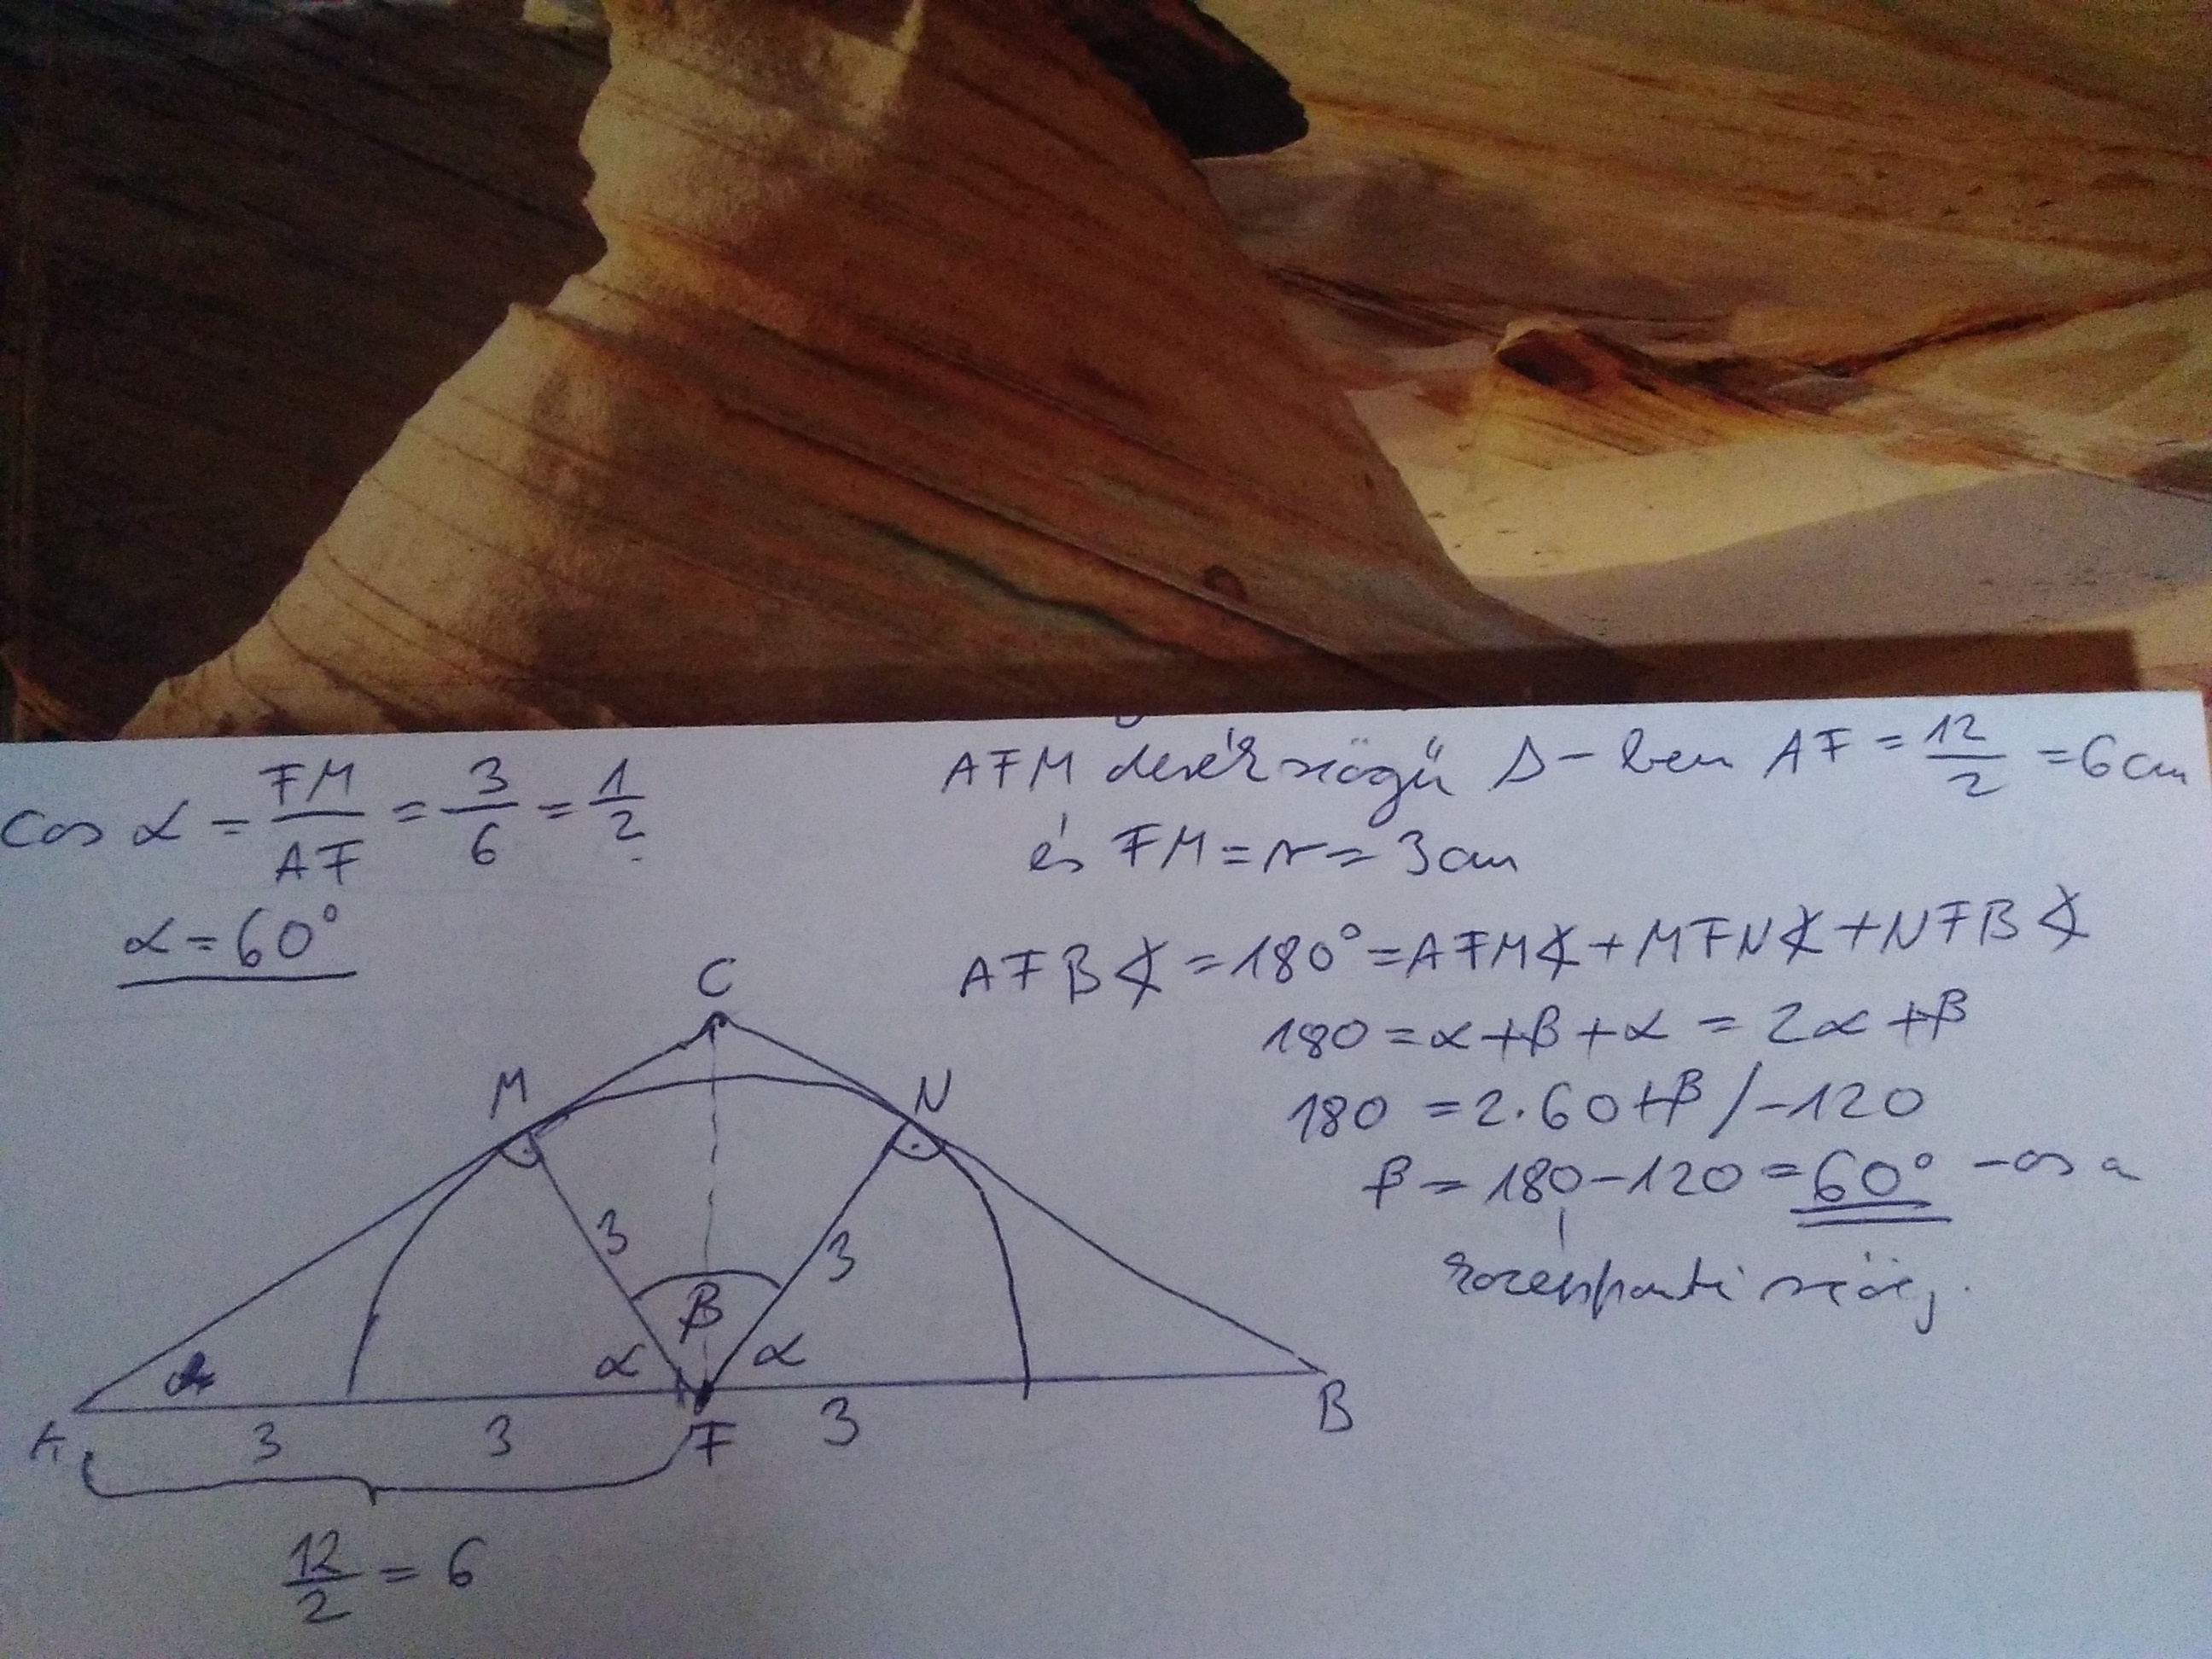 cos α = FM/AF = 3/6 = 1/2
α = 60°
AFM derékszögű Δ-ben AF = 12/2 = 6cm
és FM = r = 3cm
AFB∢ = 180° = AFM∢ + MFN∢ + NFB∢
180 = α + β + α = 2α + β
180 = 2·60 + β /-120
β = 180 - 120 = 60° -os a
középponti szög.
C
M
N
3
3
β
α
α
A
3
3
F
3
B
12/2 = 6